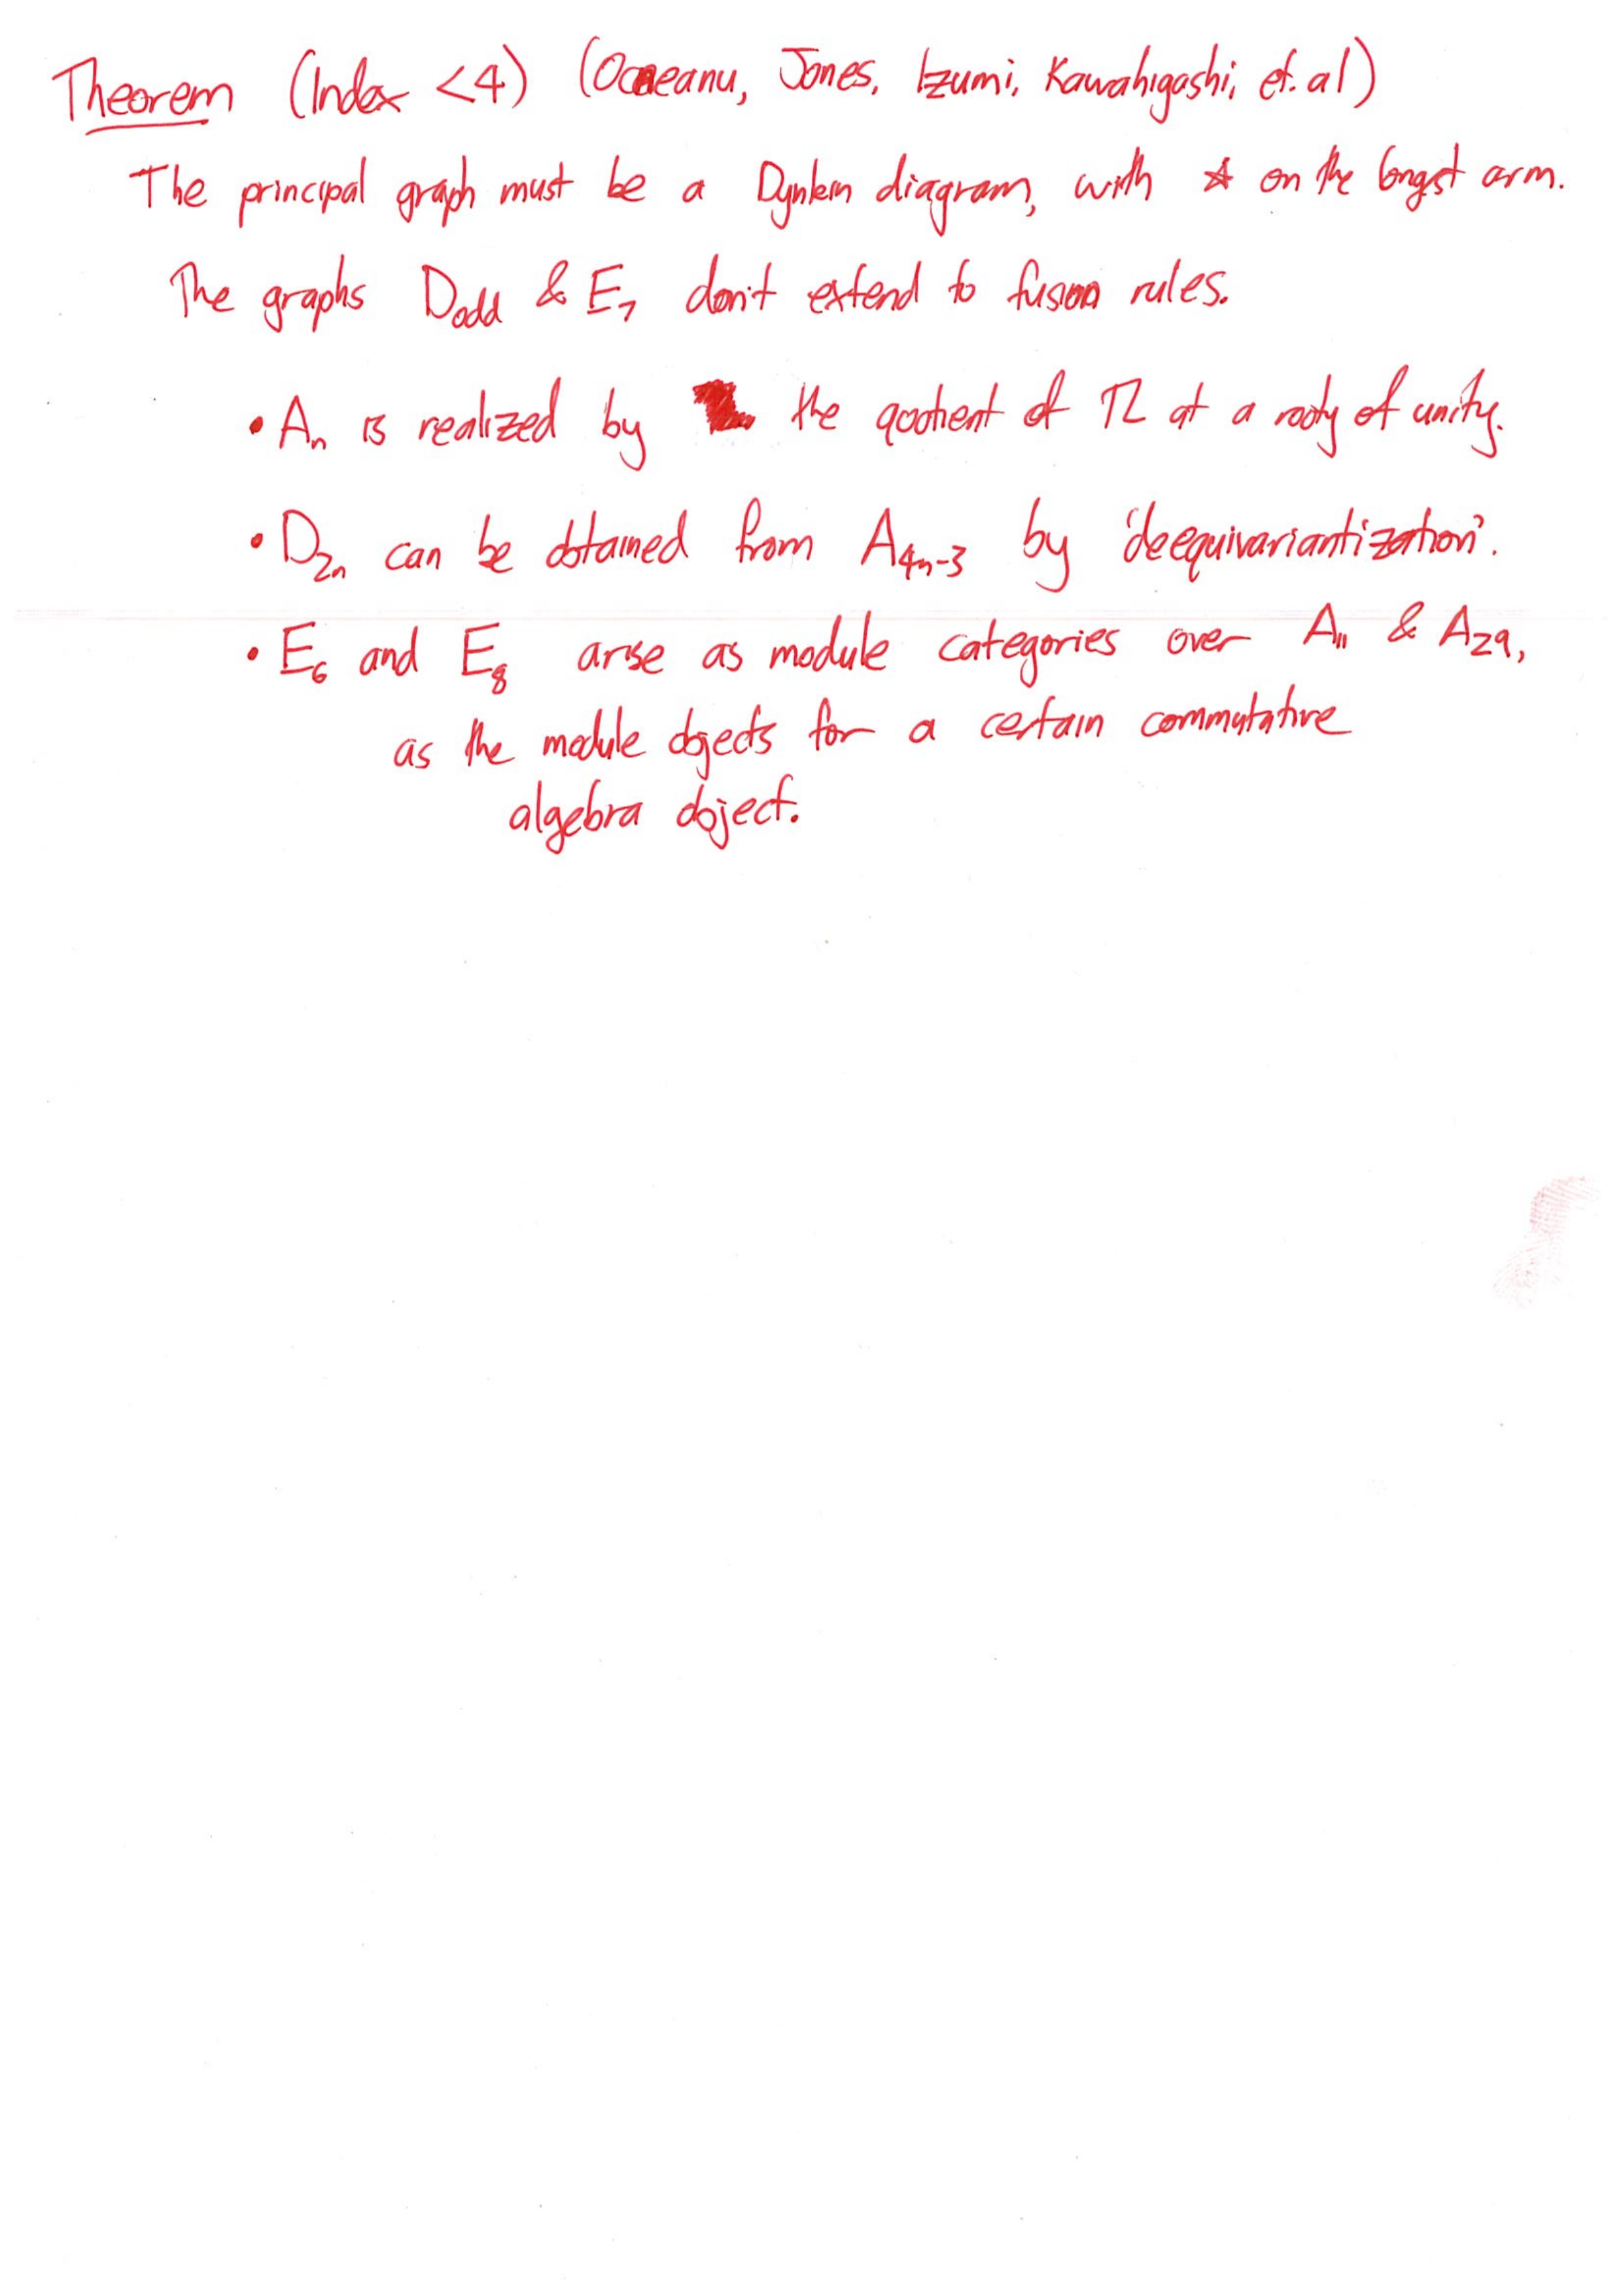 Theorem (Index <4) (Ocneanu, Jones, Izumi, Kawahigashi, et. al)
The principal graph must be a Dynkin diagram, with ☆ on the longst arm.
The graphs D_odd & E_7 don't extend to fusion rules.
• A_n is realized by the quotient of TL at a rooty of unity.
• D_2n can be obtained from A_4n-3 by 'deequivariantization'.
• E_6 and E_8 arise as module categories over A_11 & A_29,
as the module objects for a certain commutative
algebra object.